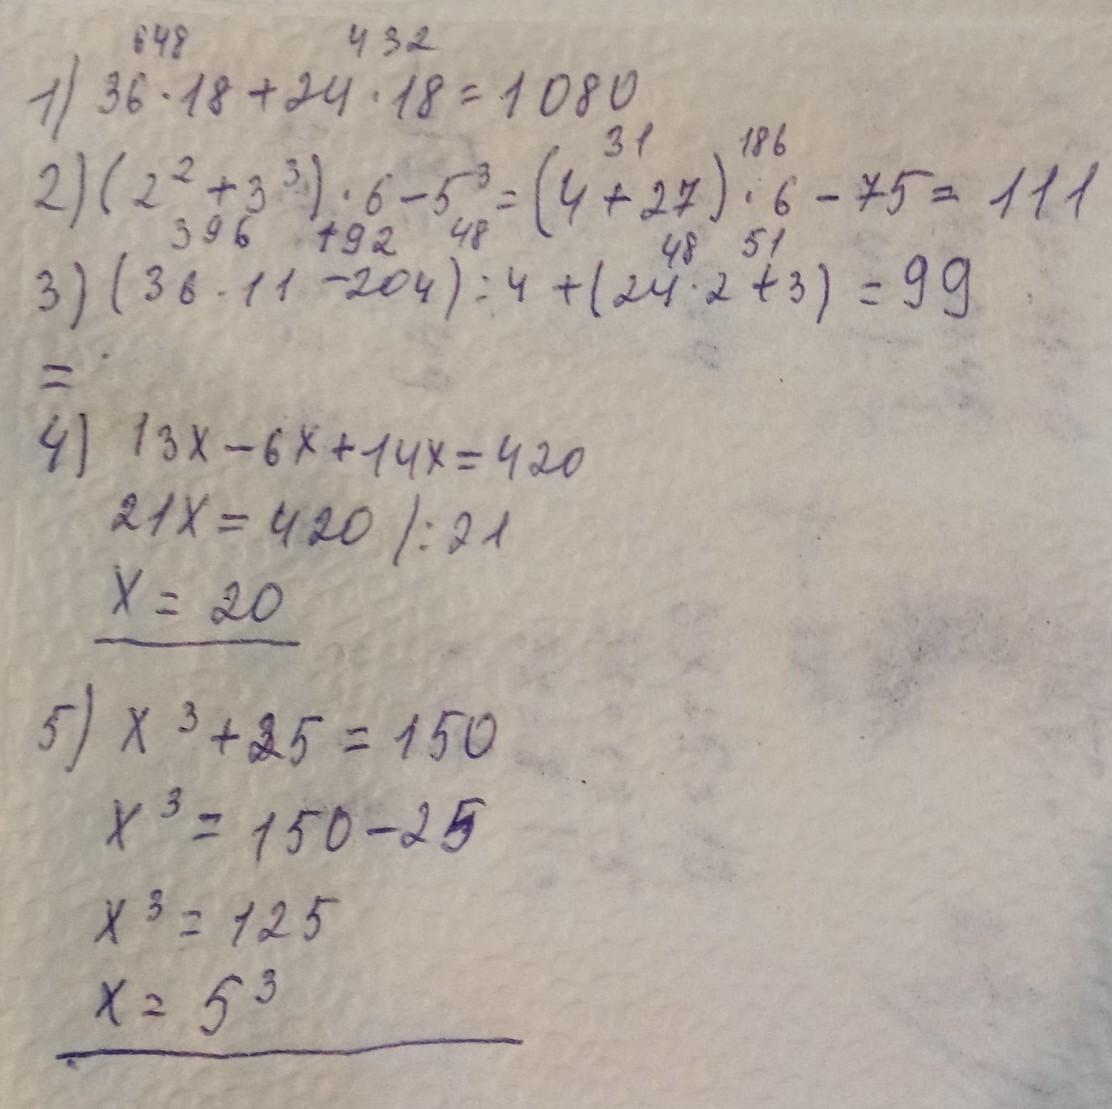 648 432
1) 36·18+24·18=1080
31 186
2) (2²+3³)·6-5³=(4+27)·6-75=111
396 +92 48 48 51
3) (36·11-204):4+(24·2+3)=99
=
4) 13x-6x+14x=420
21x=420 /:21
x=20
5) x³+25=150
x³=150-25
x³=125
x=5³